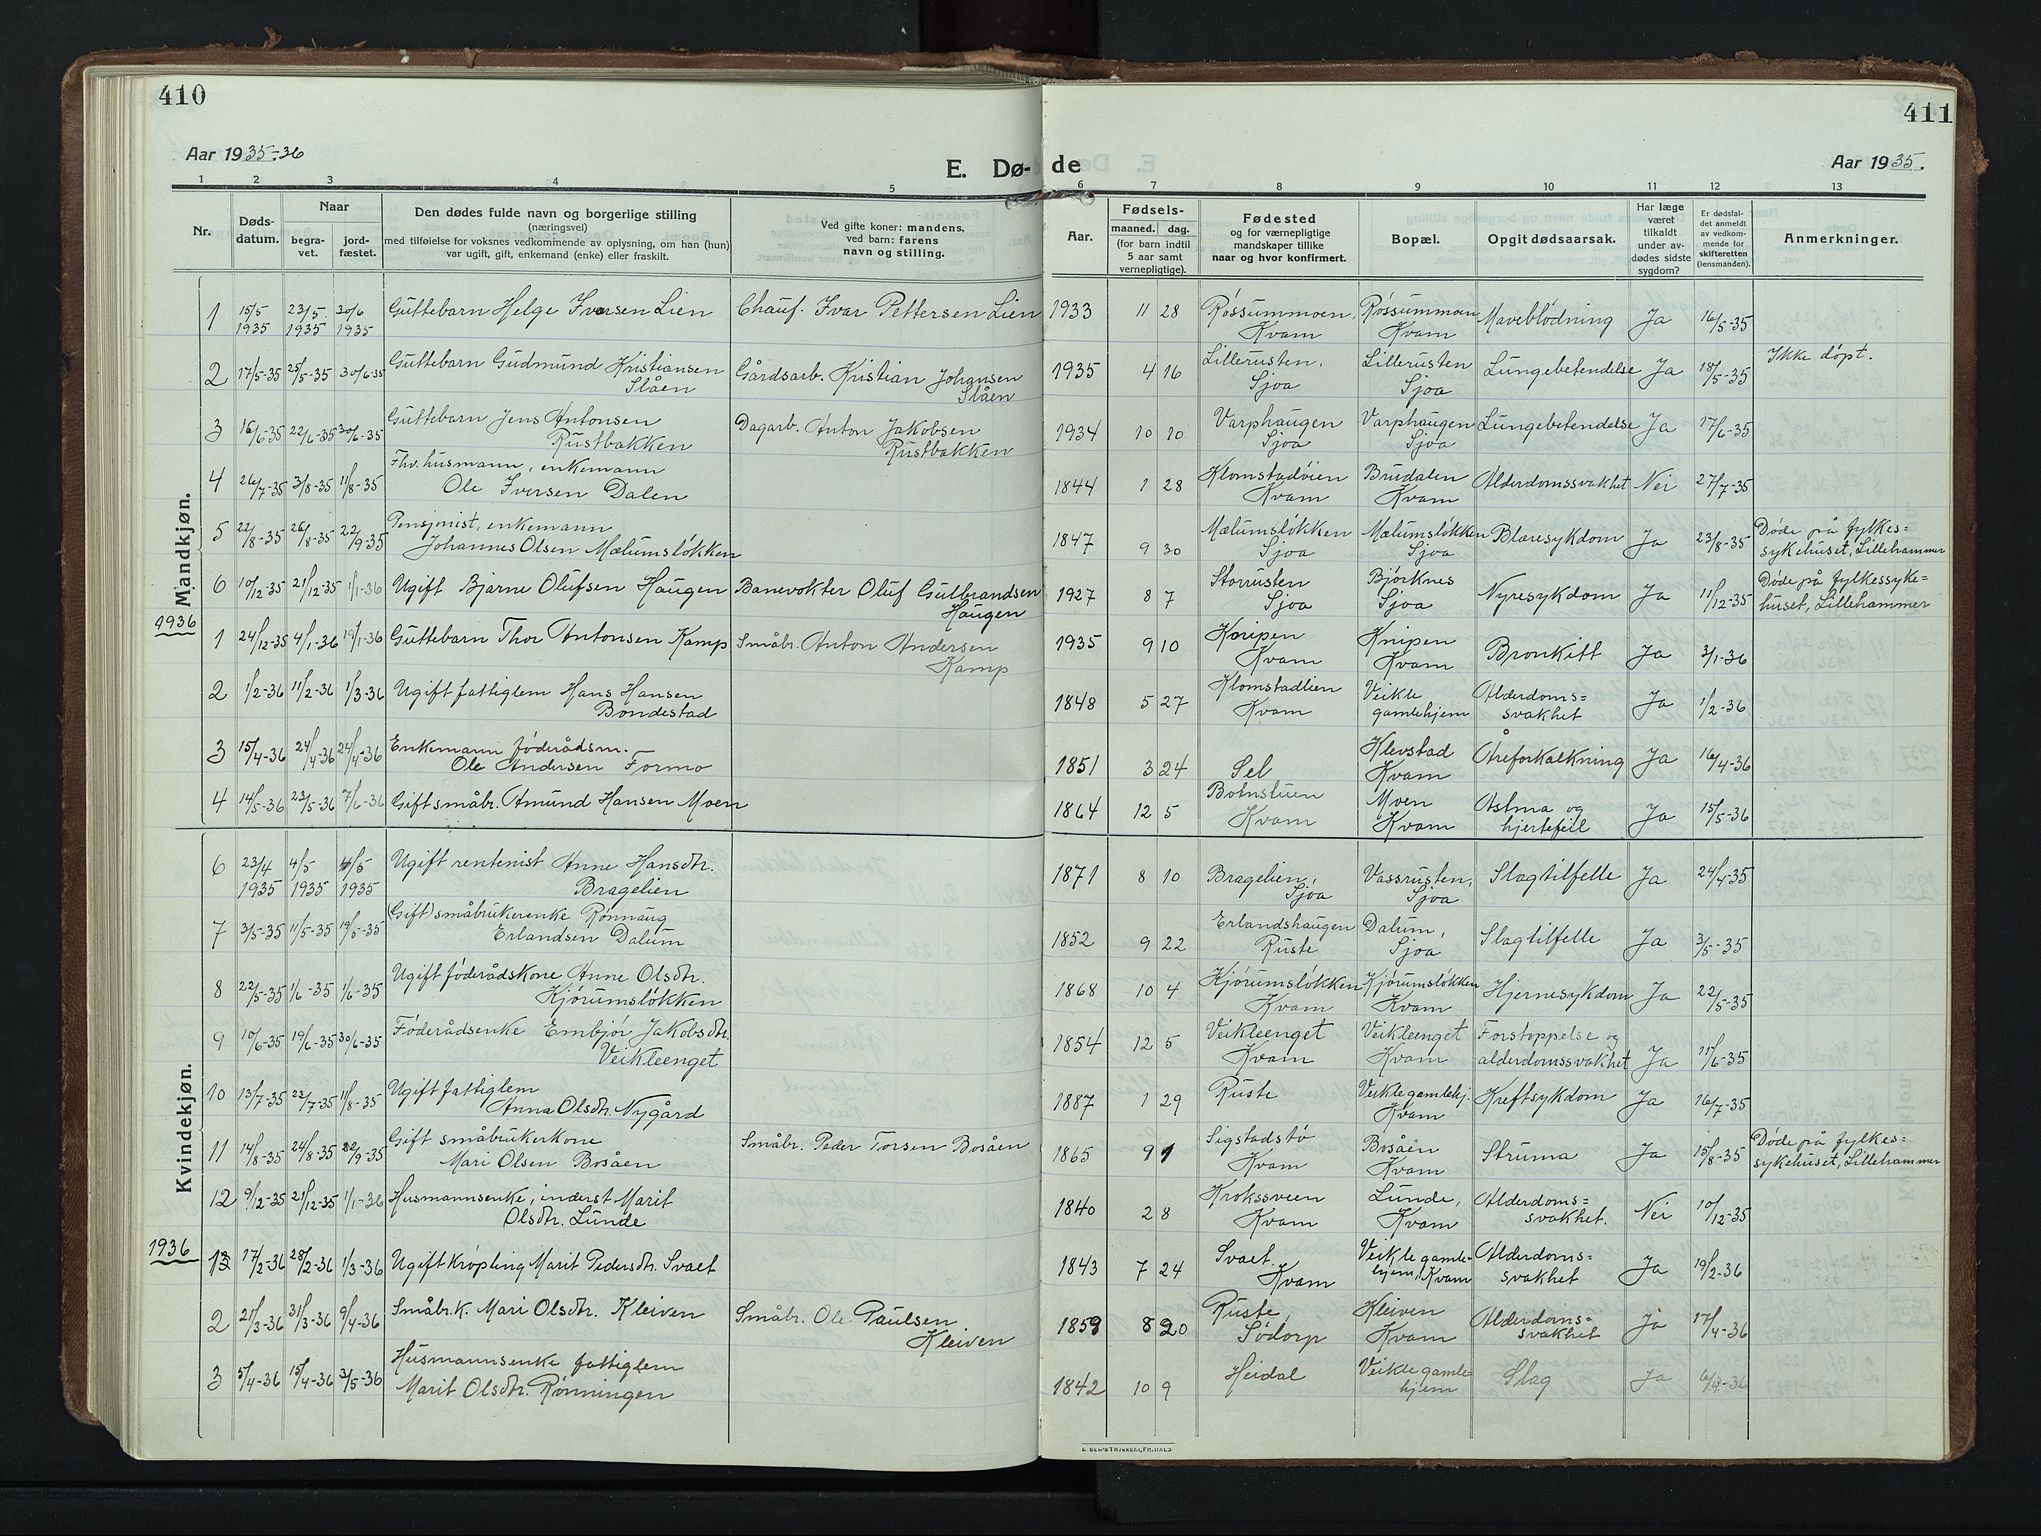 410
411
Aar 1935-36
E. Dø-
de
Aar 1935.
1 2 3 4 5 6 7 8 9 10 11 12 13
Nr.
Døds-
datum.
Naar
begra-
vet.
jord-
fæstet.
Den dødes fulde navn og borgerlige stilling
(næringsvei)
med tilføielse for voksnes vedkommende av oplysning, om han (hun)
var ugift, gift, enkemand (enke) eller fraskilt.
Ved gifte koner: mandens,
ved barn: farens
navn og stilling.
Aar.
Fødsels-
maaned. dag.
(for barn indtil
5 aar samt
vernepligtige).
Fødested
og for værnepligtige
mandskaper tillike
naar og hvor konfirmert.
Bopæl.
Opgit dødsaarsak.
Har læge
været
tilkaldt
under av-
dødes sidste
sygdom?
Er dødsfal-
det anmeldt
av vedkom-
mende for
skifteretten
(lensmanden).
Anmerkninger.
Mandkjøn.
1 15/5 1935 23/5 1935 30/6 1935 Guttebarn Helge Iversen Lien Chauf. Ivar Pettersen Lien 1933 11 28 Røssummoen, Kvam Røssummoen Kvam Maveblödning Ja 16/5-35
2 17/5-35 25/5-35 30/6-35 Guttebarn Gudmund Kristiansen Slåen Gårdsarb. Kristian Johansen Slåen 1935 4 16 Lillerusten, Sjoa Lillerusten Sjoa Lungebetendelse Ja 18/5-35 Ikke döpt.
3 16/6-35 22/6-35 30/6-35 Guttebarn Jens Antonsen Rustbakken Dagarb. Anton Jakobsen Rustbakken 1934 10 10 Varphaugen Sjoa Varphaugen Sjoa Lungebetendelse Ja 17/6-35
4 26/7-35 3/8-35 11/8-35 Fhv. husmann, enkemann Ole Iversen Dalen 1844 1 28 Klomstadöien Kvam Brudalen Kvam Alderdomssvakhet Nei 27/7-35
5 22/8-35 26/8-35 22/9-35 Pensjonist, enkemann Johannes Olsen Mælumsløkken 1847 9 30 Mælumsløkken Sjoa Mælumsløkken Sjoa Blæresykdom Ja 23/8-35 Døde på fylkes= sykehuset, Lillehammer
6 10/12-35 21/12-35 1/1-36 Ugift Bjarne Olufsen Haugen Banevokter Oluf Gulbrandsen Haugen 1927 8 7 Storrusten Sjoa Bjørknes Sjoa Nyresykdom Ja 11/12-35 Døde på fylkessyke= huset, Lillehammer
1936
1 24/12-35 4/1-36 19/1-36 Guttebarn Thor Antonsen Kamp Småbr. Anton Andersen Kamp 1935 9 10 Knipen Kvam Knipen Kvam Bronkitt Ja 3/1-36
2 1/2-36 11/2-36 1/3-36 Ugift fattiglem Hans Hansen Bondestad 1848 5 27 Klomstadlien Kvam Veikle gamlehjem Alderdoms= svakhet Ja 1/2-36
3 15/4-36 24/4-36 24/4-36 Enkemann føderådsm. Ole Andersen Formo 1851 3 24 Sel Klevstad Kvam Åreforkalkning Ja 16/4-36
4 14/5-36 23/5-36 7/6-36 Gift småbr. Amund Hansen Moen 1864 12 5 Botnstuen Kvam Moen Kvam Astma og hjertefeil Ja 15/5-36
Kvindekjøn.
6 23/4 1935 4/5 1935 4/5 1935 Ugift rentenist Anne Hansdtr. Bragelien 1871 8 10 Bragelien, Sjoa Vassrusten, Sjoa Slagtilfelle Ja 24/4-35
7 3/5-35 11/5-35 19/5-35 (Gift) småbrukerenke Rønnaug Erlandsen Dalum 1852 9 22 Erlandshaugen Ruste Dalum, Sjoa Slagtilfelle Ja 3/5-35
8 22/5-35 1/6-35 1/6-35 Ugift føderådskone Anne Olsdtr. Kjørumsløkken 1868 10 4 Kjørumsløkken Kvam Kjørumsløkken Kvam Hjernesykdom Ja 22/5-35
9 10/6-35 19/6-35 30/6-35 Føderådsenke Embjør Jakobsdtr. Veikleenget 1854 12 5 Veikleenget Kvam Veikleenget Kvam Forstoppelse og alderdomssvakhet Ja 11/6-35
10 13/7-35 22/7-35 11/8-35 Ugift fattiglem Anna Olsdtr. Nygård 1887 1 29 Ruste Veikle gamlehj. Kvam Kreftsykdom Ja 16/7-35
11 14/8-35 24/8-35 22/9-35 Gift småbrukerkone Mari Olsen Bosåen Småbr. Peder Torsen Bosåen 1865 9 1 Sigstadstø Kvam Bosåen Kvam Struma Ja 15/8-35 Døde på fylkes= sykehuset, Lillehammer
12 9/12-35 21/12-35 1/1-36 Husmannsenke, inderst Marit Olsdtr. Lunde 1840 2 8 Krokssveen Kvam Lunde, Kvam Alderdoms= svakhet. Nei 10/12-35
1936
1 17/2-36 28/2-36 1/3-36 Ugift krøpling Marit Pedersdtr. Svaet 1843 7 24 Svaet, Kvam Veikle gamle= hjem, Kvam Alderdoms= svakhet Ja 19/2-36
2 21/3-36 31/3-36 9/4-36 Småbr.k. Mari Olsdtr. Kleiven Småbr. Ole Paulsen Kleiven 1859 8 20 Ruste, Södorp Kleiven Kvam Alderdoms= svakhet Ja 17/4-36
3 5/4-36 15/4-36 3/5-36 Husmannsenke fattiglem Marit Olsdtr. Rønningen 1842 10 9 Heidal Veikle gamle= hjem Slag Ja 6/4-36